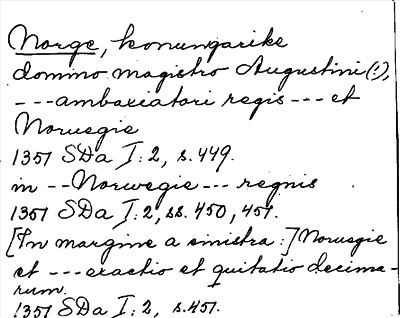 Norge, konungarike
domino magistro Augustini (!),
---ambaxiatori regis --- et
Noruegie
1351 SDa I:2, s. 449.
in -- Norwegie --- regnis
1351 SDa I:2, ss. 450, 451.
[In margine a sinistra:] Noruegie
et --- exactio et quitatio decima-
rum.
1351 SDa I:2, s. 451.